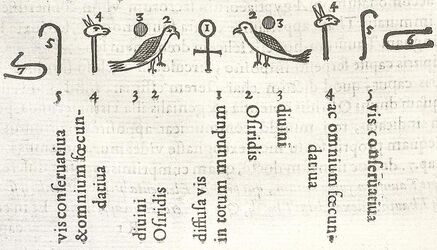 7 5 4 3 2 1 2 3 4 5 6
5 4 3 2 1 2 3 4 5
vis conſeruatiua
&omnium fœcun-
datiua
diuini
Oſiridis
diffuſa vis
in totum mundum
Oſiridis
diuini
ac omnium fœcun-
datiua
vis conſeruatiua